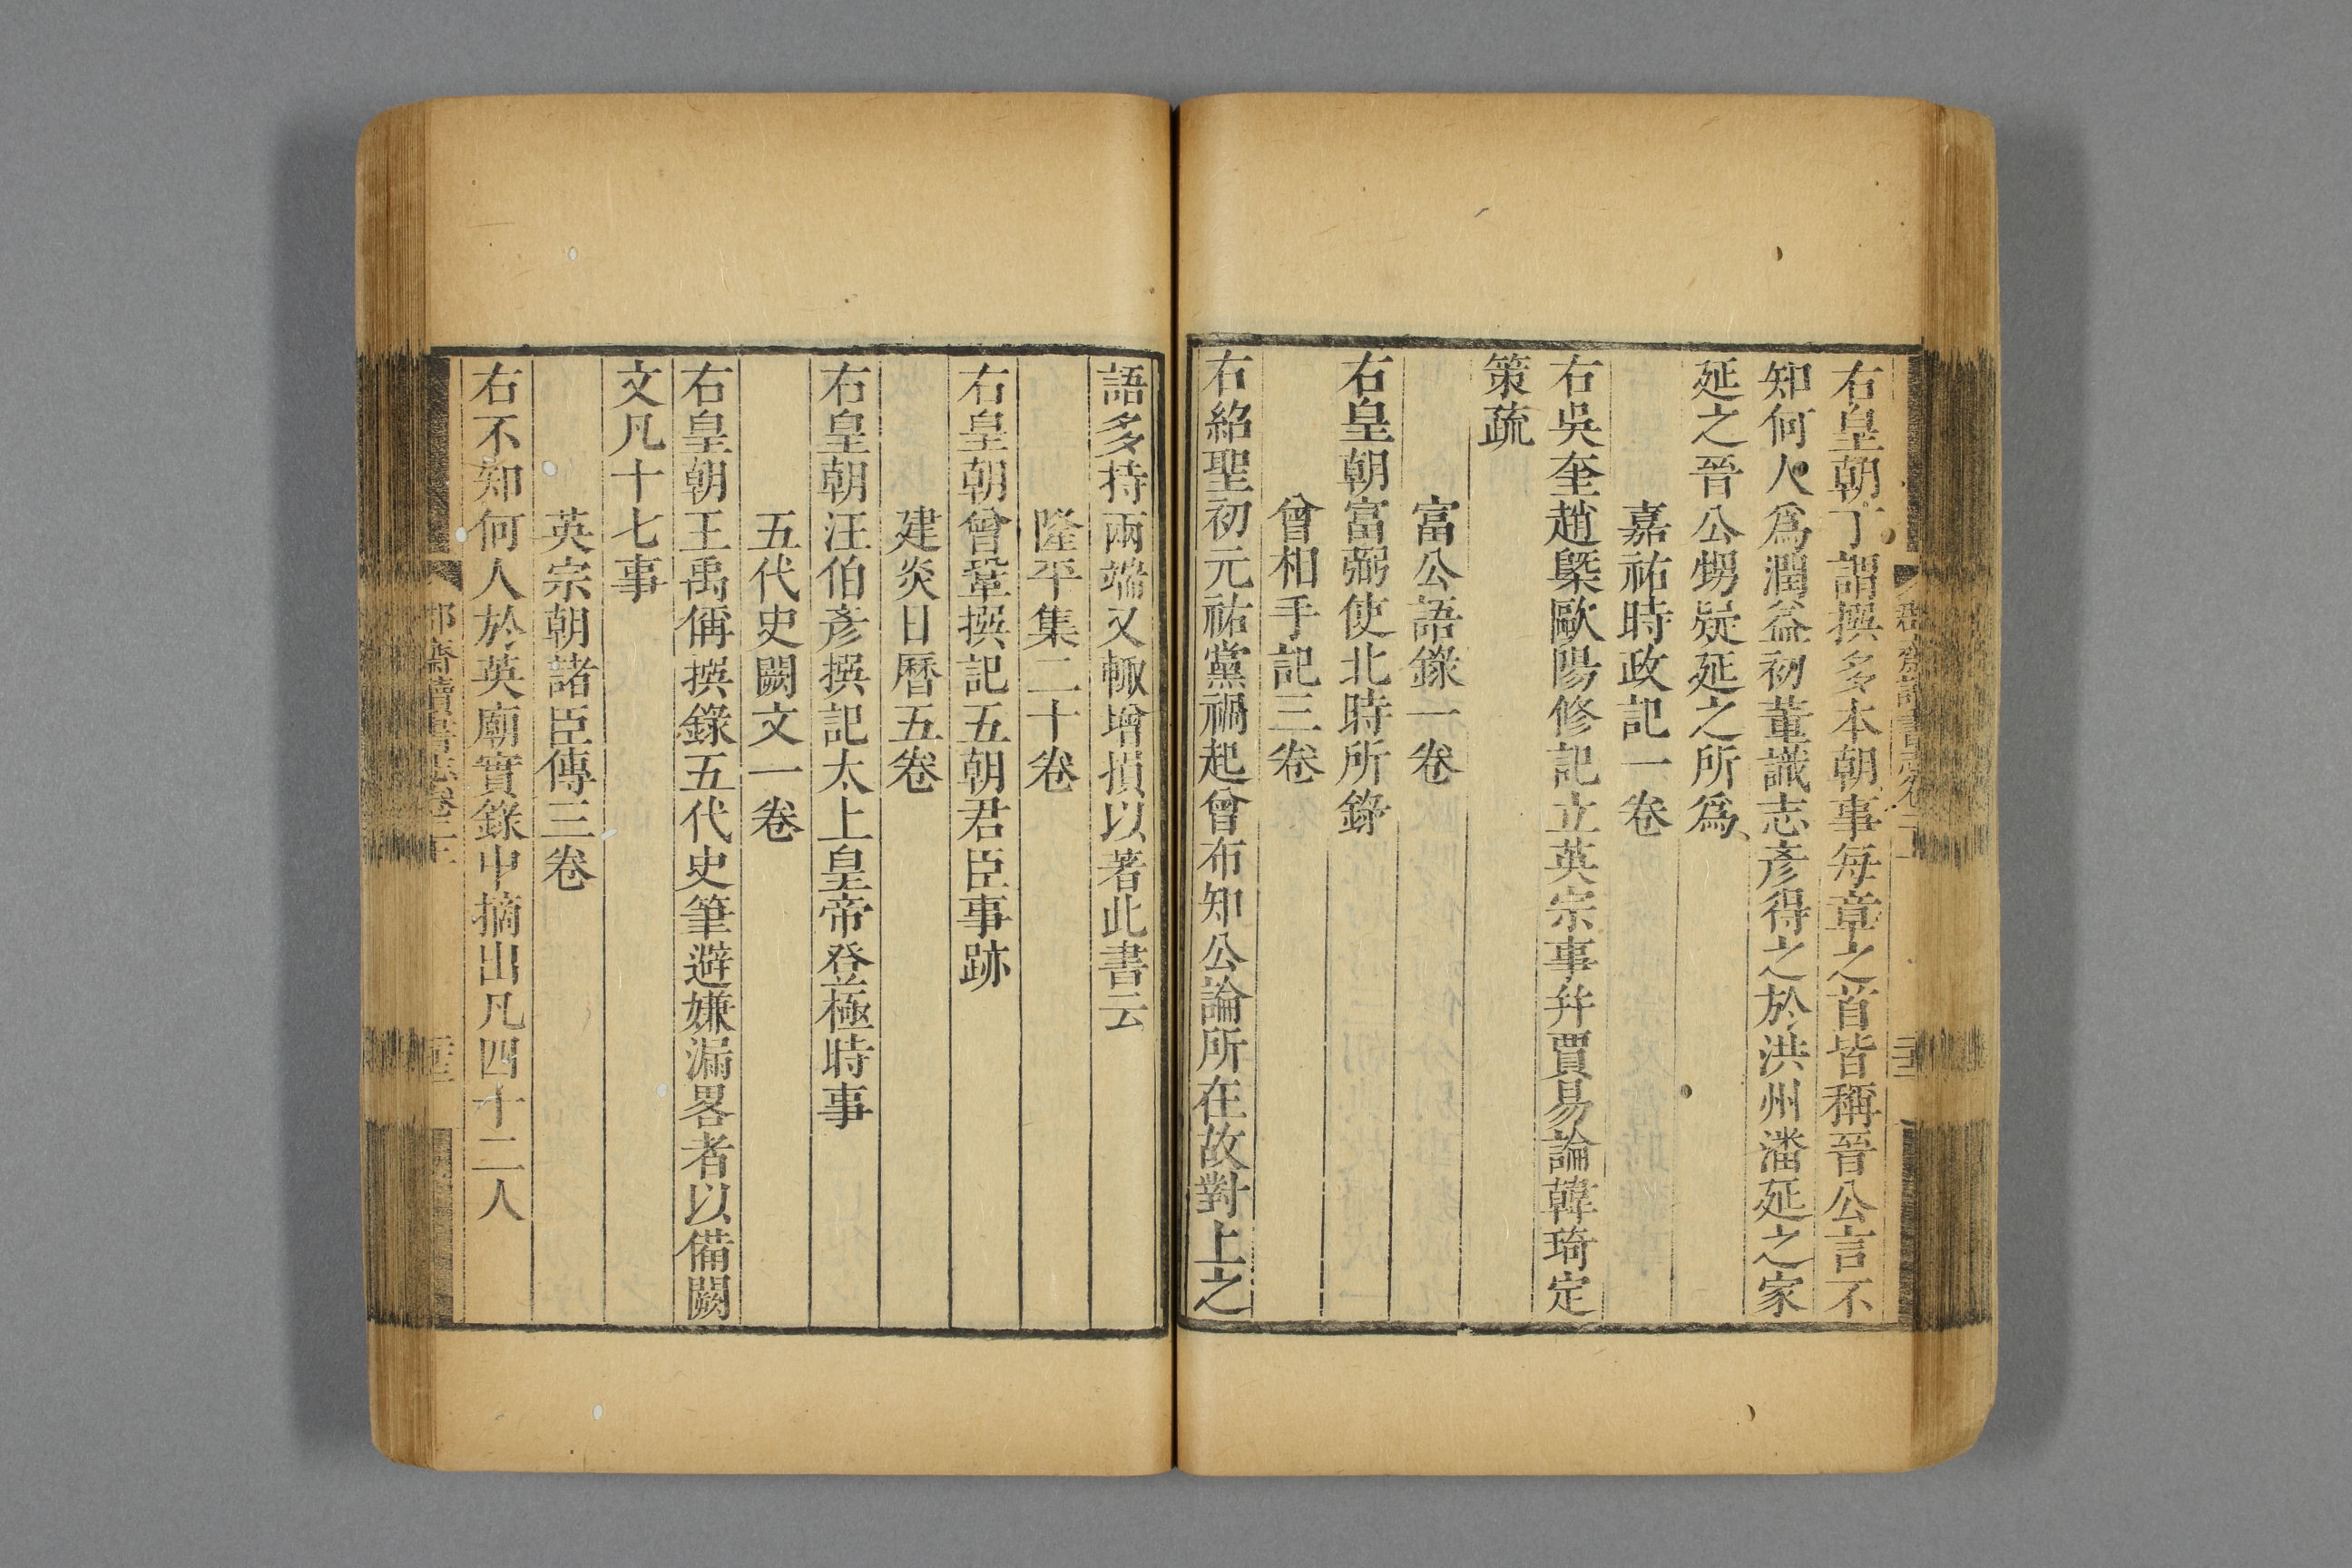 右皇朝丁謂撰多本朝事每章之首皆稱晉公言不
知何人爲潤益初董識志彥得之於洪州潘延之家
延之晉公甥疑延之所爲
嘉祐時政記一卷
右吳奎趙槩歐陽修記立英宗事幷賈易論韓琦定
策疏
富公語錄一卷
右皇朝富弼使北時所錄
曾相手記三卷
右紹聖初元祐黨禍起曾布知公論所在故對上之
語多持兩端又輙增損以著此書云
隆平集二十卷
右皇朝曾鞏撰記五朝君臣事跡
建炎日曆五卷
右皇朝汪伯彥撰記太上皇帝登極時事
五代史闕文一卷
右皇朝王禹偁撰錄五代史筆避嫌漏畧者以備闕
文凡十七事
英宗朝諸臣傳三卷
右不知何人於英廟實錄中摘出凡四十二人